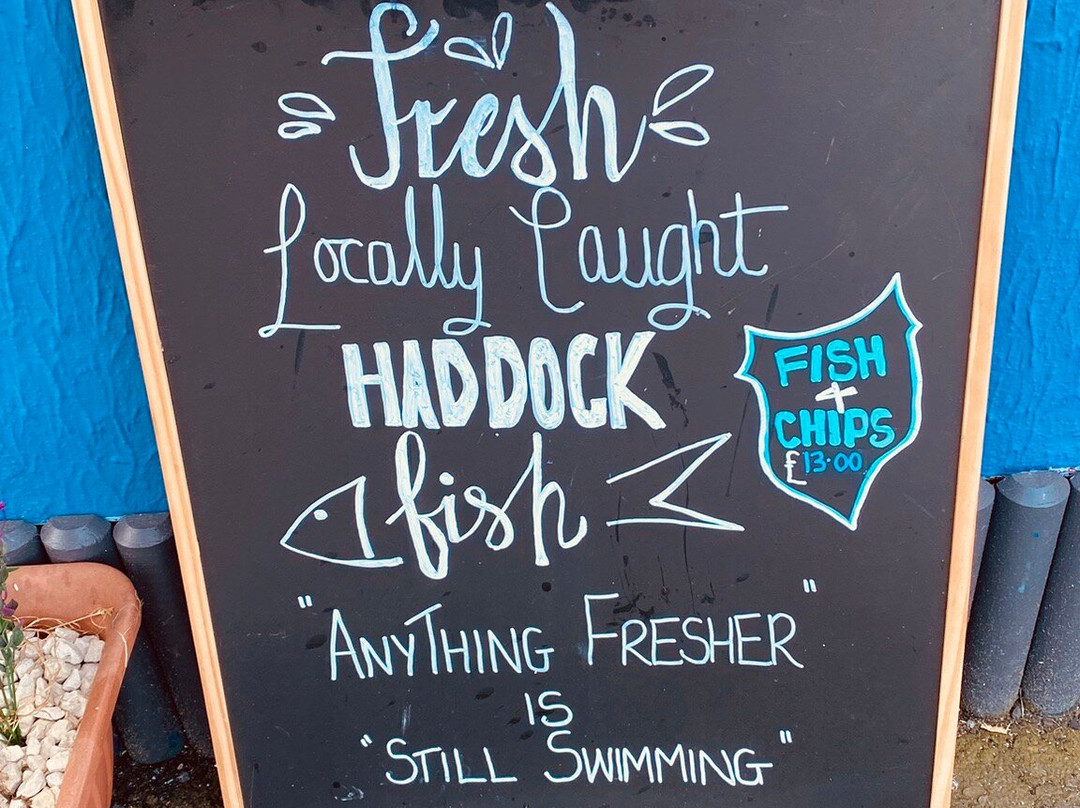 Fresh
Locally Caught
HADDOCK
fish
FISH
+
CHIPS
£13·00
"ANYTHING FRESHER"
IS
"STILL SWIMMING"